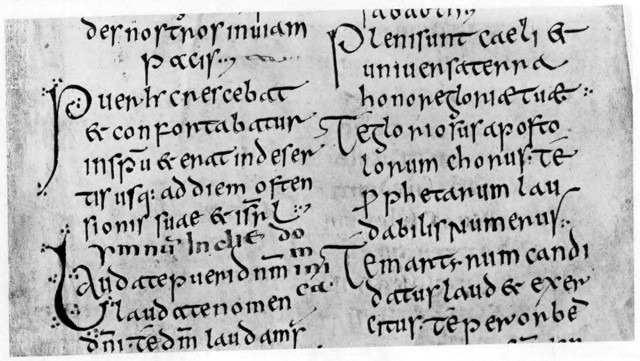 des nostros inuiam
pacis
Puer h̄ crescebat
& confortabatur
insp̄u & erat indeser
tis usq: addiem osten
sionis suae & isr̄l
ymnū In die do
mini
ca
Laudate pueri dn̄m
laudate nomen
dn̄i. Tē dm̄ laudams
Pleni sunt caeli &
uniuersa terra
honore gloriæ tuæ
Te gloriosus aposto
lorum chorus. Tē
prophetarum lau
dabilis numerus
Te martyrum candi
datus laud& exer
citus. tē per orbē